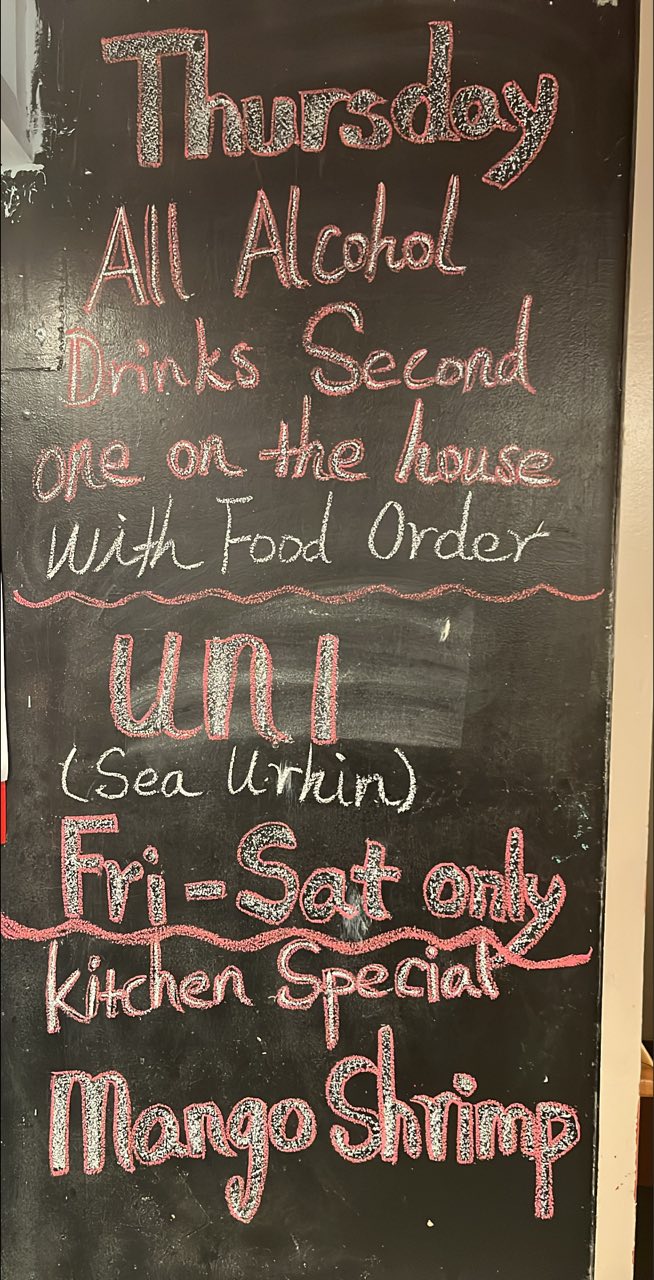 Thursday
All Alcohol
Drinks Second
one on the house
With Food Order
uni
(Sea Urhin)
Fri-Sat only
kitchen Special
Mango Shrimp